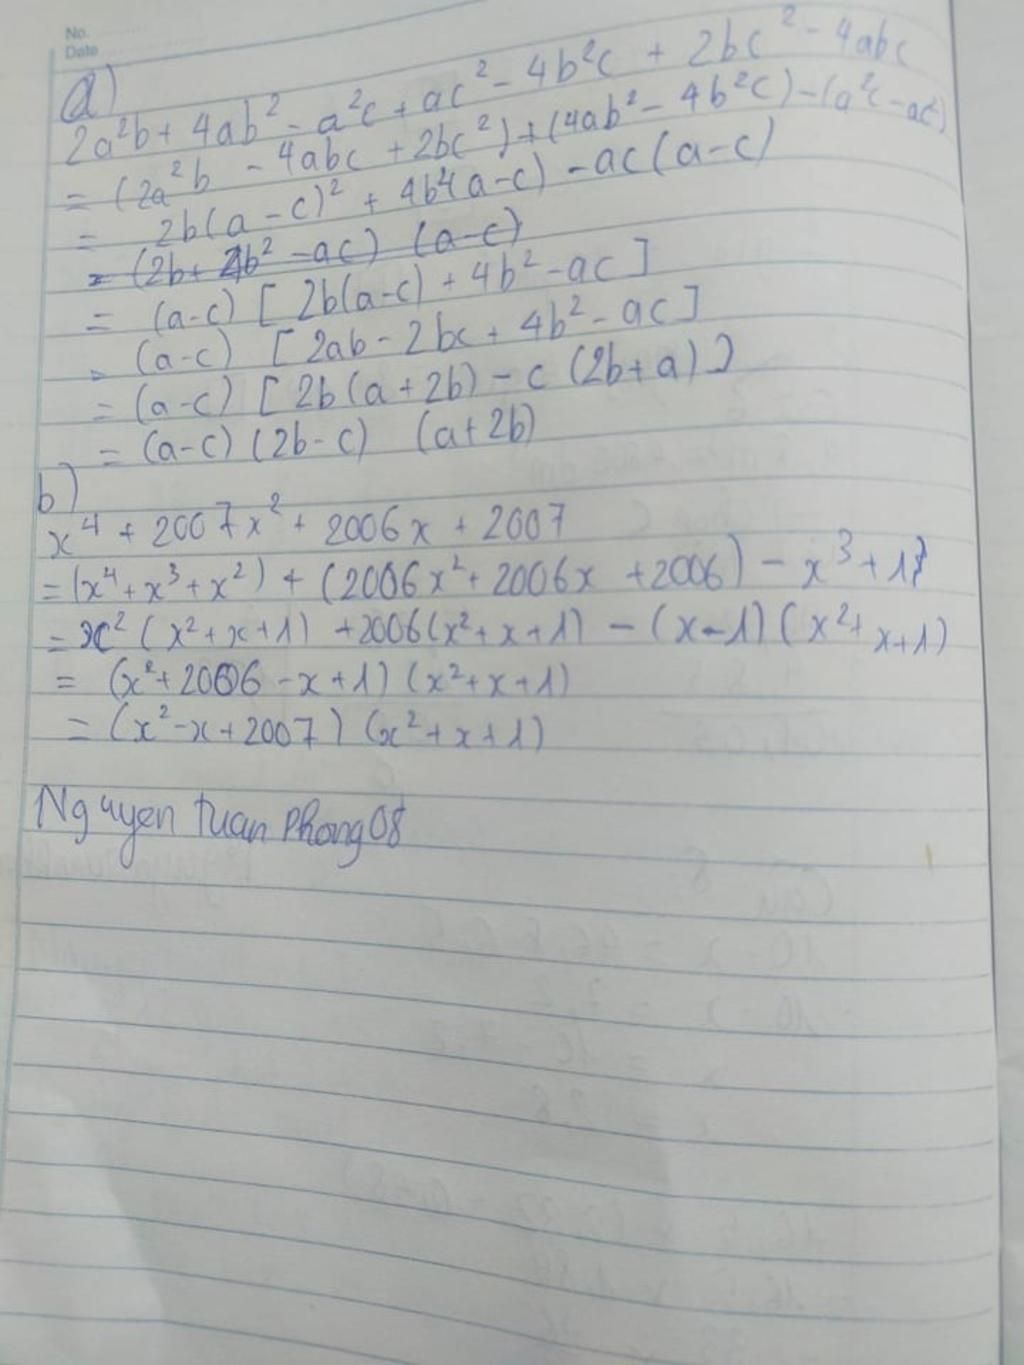 No.
Date
a)
2a²b + 4ab² - a²c + ac² - 4b²c + 2bc² - 4abc
= (2a²b - 4abc + 2bc²) + (4ab² - 4b²c) - (a²c - ac²)
= 2b(a - c)² + 4b²(a-c) - ac(a-c)
= (2b + 4b² - ac) (a-c)
= (a-c) [2b(a-c) + 4b² - ac]
= (a-c) [2ab - 2bc + 4b² - ac]
= (a-c) [2b(a + 2b) - c (2b+a)]
= (a-c) (2b-c) (a+2b)
b)
x⁴ + 2007x² + 2006x + 2007
= (x⁴ + x³ + x²) + (2006x² + 2006x + 2006) - x³ + 1
= x² (x² + x + 1) + 2006(x² + x + 1) - (x-1) (x² + x+1)
= (x² + 2006 - x + 1) (x² + x + 1)
= (x² - x + 2007) (x² + x + 1)
Nguyen tuan Phong08